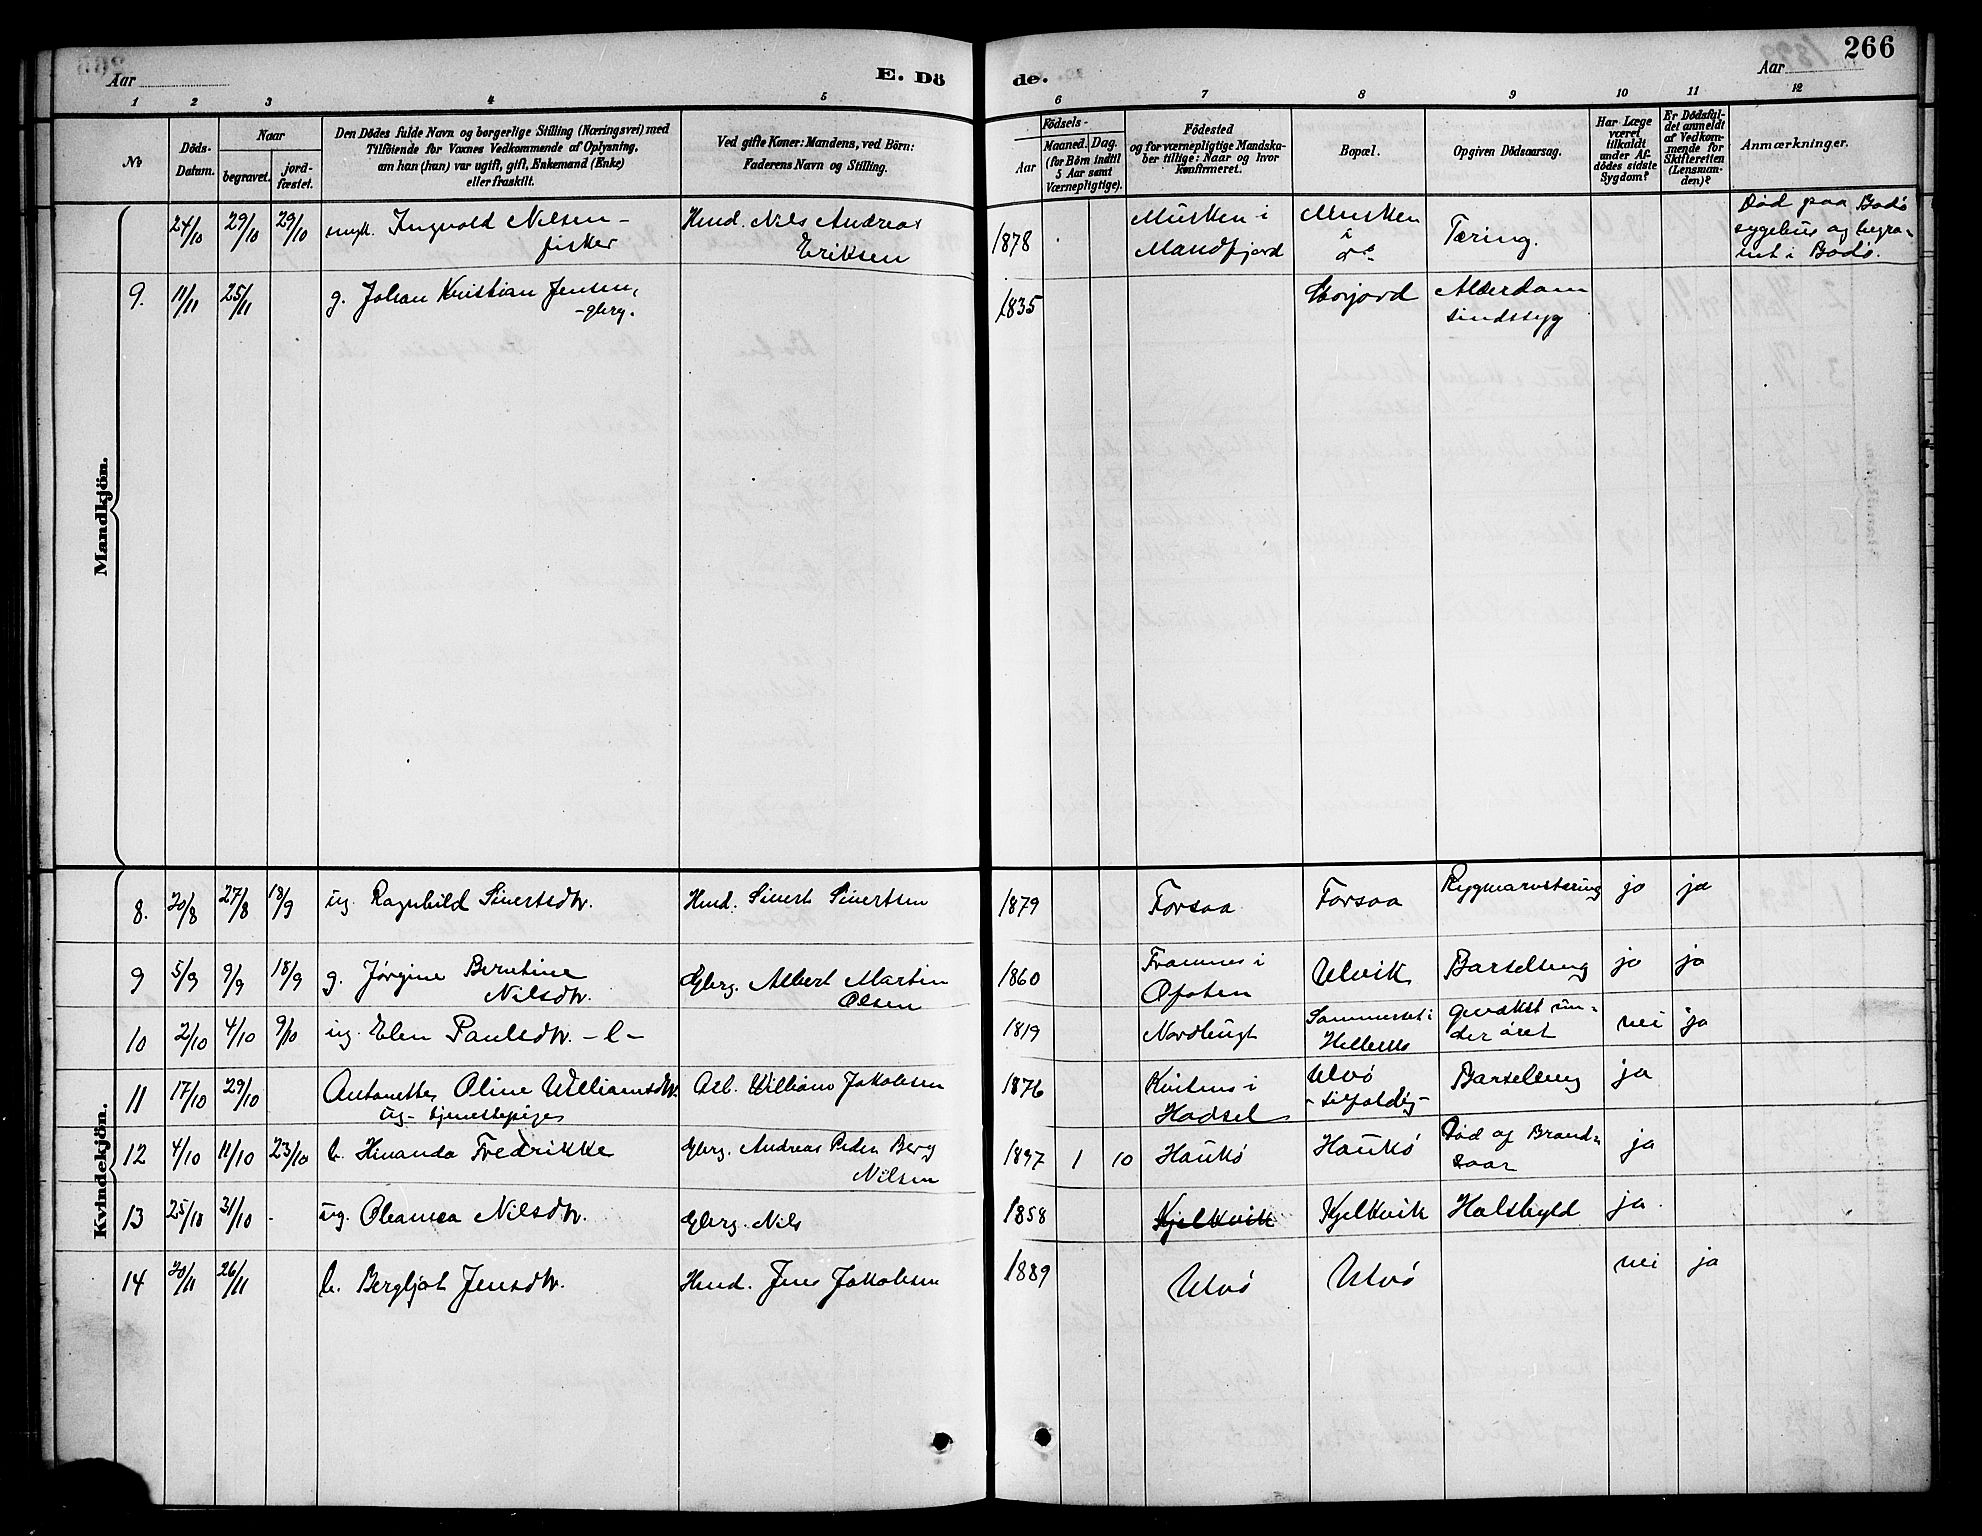 Aar
E. Dö
de.
Aar
266
1 2 3 4 5 6 7 8 9 10 11 12
No
Döds-
Datum.
Naar
begravet.
jord-
fæstet.
Den Dödes fulde Navn og borgerlige Stilling (Næringsvei) med
Tilföiende for Voxnes Vedkommende af Oplysning,
om han (hun) var ugift, gift, Enkemand (Enke)
eller fraskilt.
Ved gifte Koner: Mandens, ved Börn:
Faderens Navn og Stilling.
Födsels-
Aar
Maaned. Dag.
(for Börn indtil
5 Aar samt
Værnepligtige).
Födested
og for værnepligtige Mandska-
ber tillige: Naar og hvor
konfirmeret.
Bopæl.
Opgiven Dödsaarsag.
Har Læge
været
tilkaldt
under Af-
dödes sidste
Sygdom?
Er Dödsfal-
det anmeldt
af Vedkom-
mende for
Skifteretten
(Lensman-
den)?
Anmærkninger.
Mandkjön.
24/10 29/10 29/10 Ingvold Nilsen - Hmd. Nils Andreas 1878 Musken i Musken Tæring. Død paa Bodø
fisker Eriksen Mandfjord sygehus og begra-
vet i Bodø.
9. 11/11 25/11 g. Johan Kristian Jensen, 1835 Storjord Alderdom
-gbrg. sindssyg
Kvindekjön.
8. 20/8 27/8 18/9 ug. Ragnhild Sivertsdtr. Hmd. Sivert Sivertsen 1879 Forsaa Forsaa Rygmarvstæring ja ja
9 5/9 9/9 18/9 g. Jørgine Berntine Gbrg. Albert Martin 1860 Framnes i Ulvik Barselseng ja ja
Nilsdtr. Olsen Ofoten
10 2/10 4/10 9/10 ug. Elen Paulsdtr. -l- 1819 Nordbugt Sommerset i nei ja
11 17/10 29/10 Antonette Oline Williamsdtr. Arb. William Jakobsen 1876 i Ulvø Barselseng ja
ug- tjenestepige Hadsel -tilfældig-
12 4/10 11/10 23/10 b. Hinanda Fredrikke Gbrg. Andreas Peder Berg 1897 1 10 Haukø Haukø Død af Brand- ja
Nilsen saar
13 25/10 31/10 - ug. Oleanna Nilsdtr. Gbrg. Nils 1858 Kjelkvik Kjelkvik Halsbyld ja.
14 20/11 26/11 b. Bergljot Jensdtr. Hmd. Jens Jakobsen 1889 Ulvø Ulvø nei ja